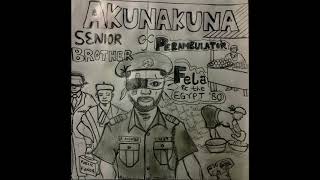 AKUNAKUNA
SENIOR
BROTHER
PERAMBULATOR
Fela
& the
EGYPT '80